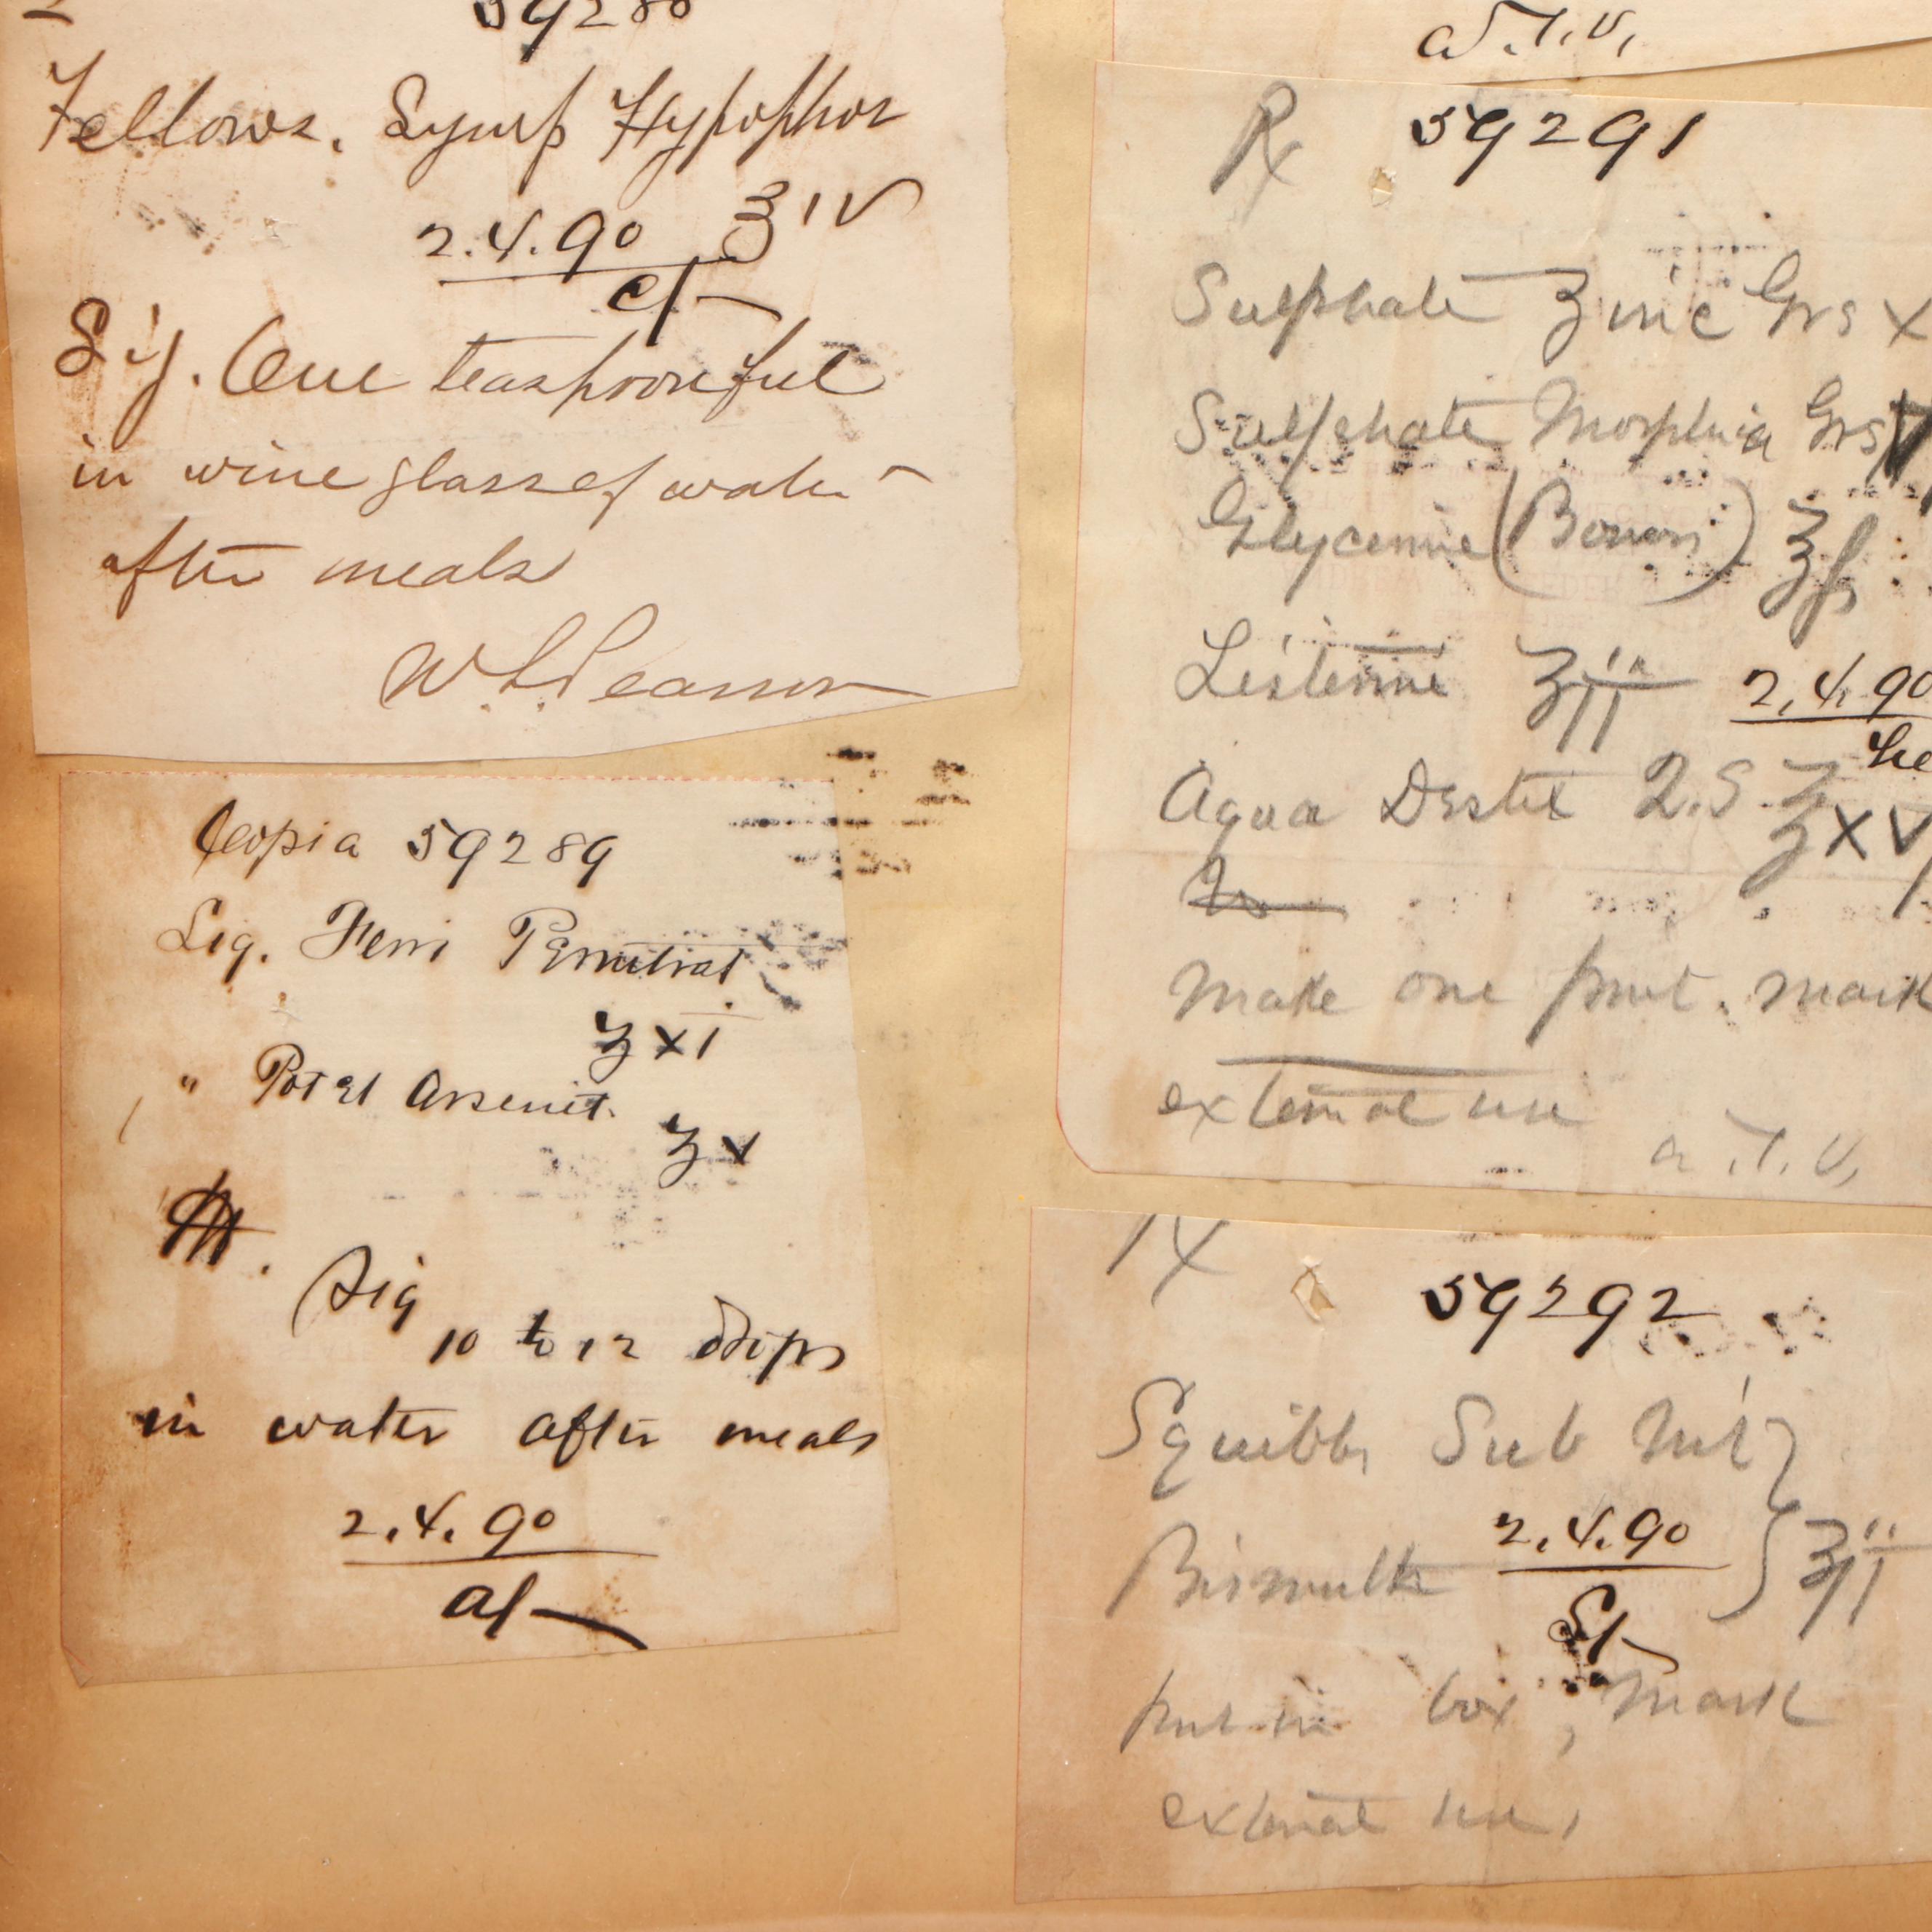 59288
Fellows. Syrup Hypophos
℥ IV
2.4.90
Sig. One teaspoonful
in wine glass of water
after meals
W. L. Pearson
Copia 59289
Liq. Ferri Pernitrat
ʒ XI
" Potas Arsenit.
ʒ V
M.
Sig
10 to 12 drops
in water after meals
2.4.90
a. T. V.
Rx 59291
Sulphate Zinc Grs X
Sulphate Morphia Grs
Glycerine (Bowers)
Listerine ℥ii
2.4.90
Aqua Destil Q.S. ℥XV
make one pint. mark
external use
a. T. V.
Rx
59292
Squibbs Sub Nit
Bismuth ℥ii
2.4.90
put in box, mark
external use,